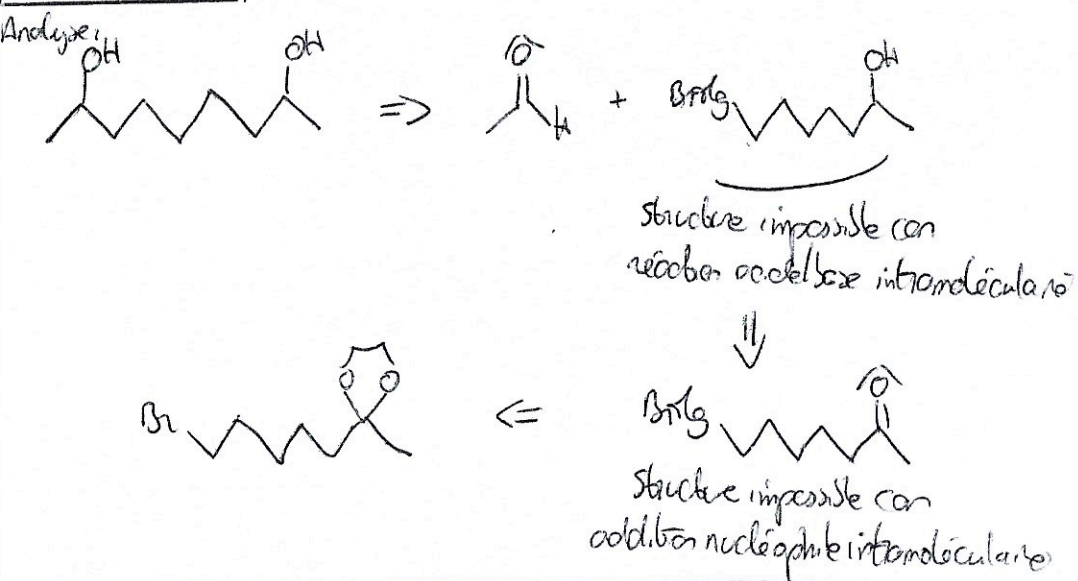 Analyse:
OH
OH
O
H
+
BrMg
OH
⇒
Structure impossible car
réaction acide/base intramoléculaire
⇓
Br
O O
⇐
BrMg
O
Structure impossible car
addition nucléophile intramoléculaire